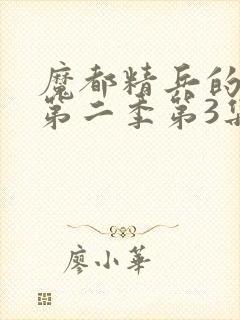 魔都精兵的
第二季第3集
廖小華